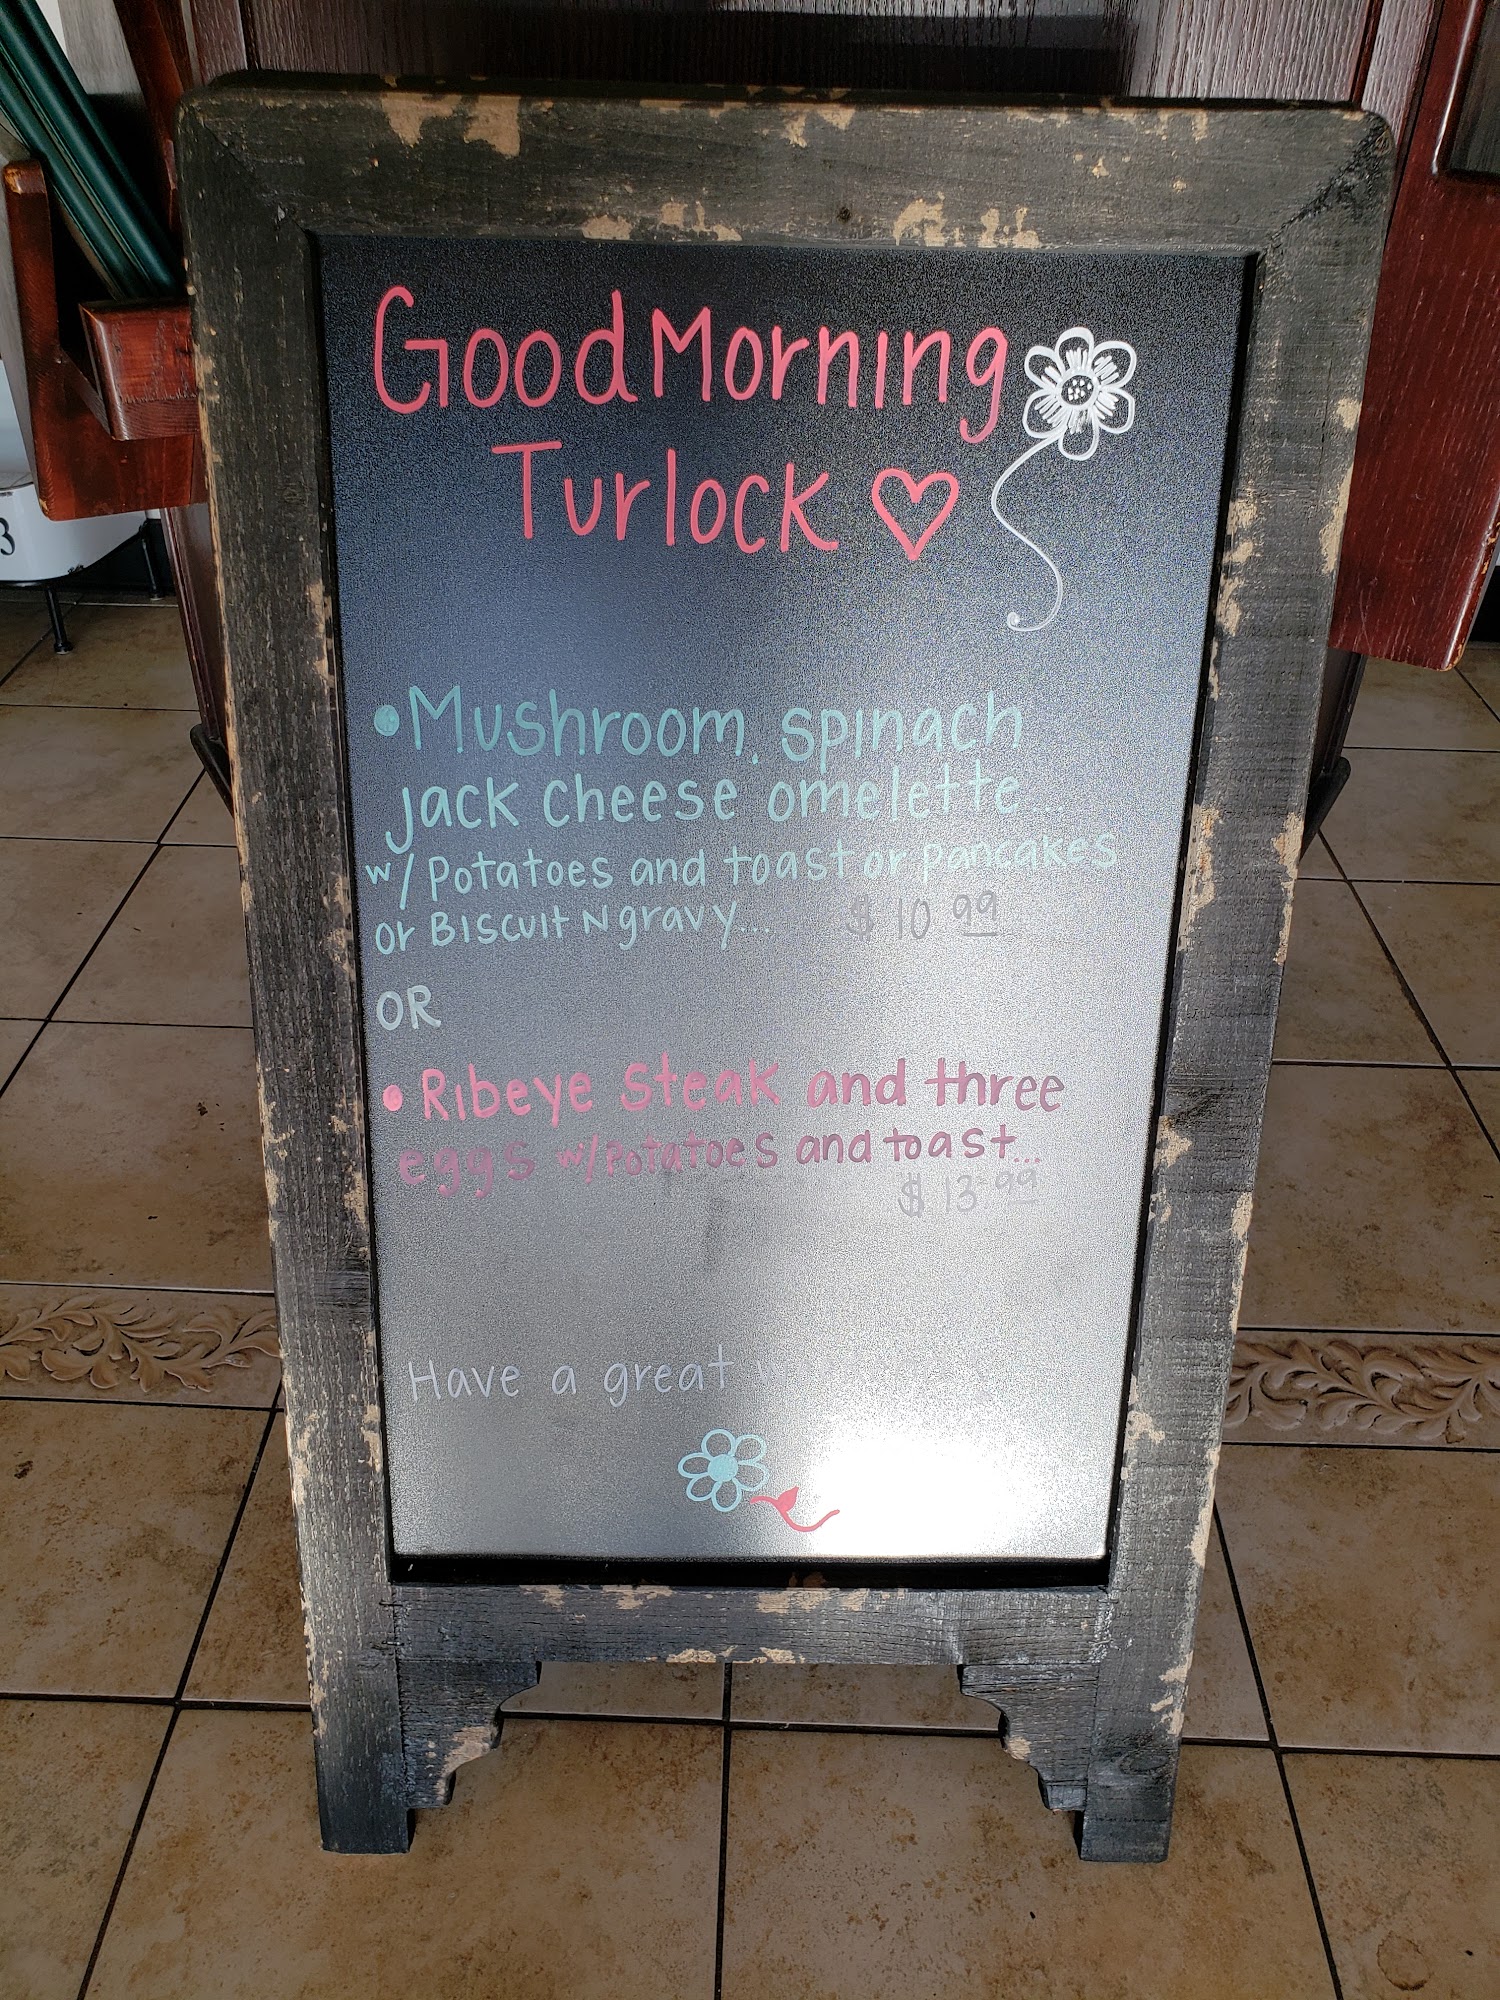 Good Morning
Turlock
• Mushroom, spinach
jack cheese omelette..
w/ Potatoes and toast or pancakes
or Biscuit N gravy... $ 10 99
OR
• Ribeye steak and three
eggs w/ potatoes and toast...
$ 13 99
Have a great
3